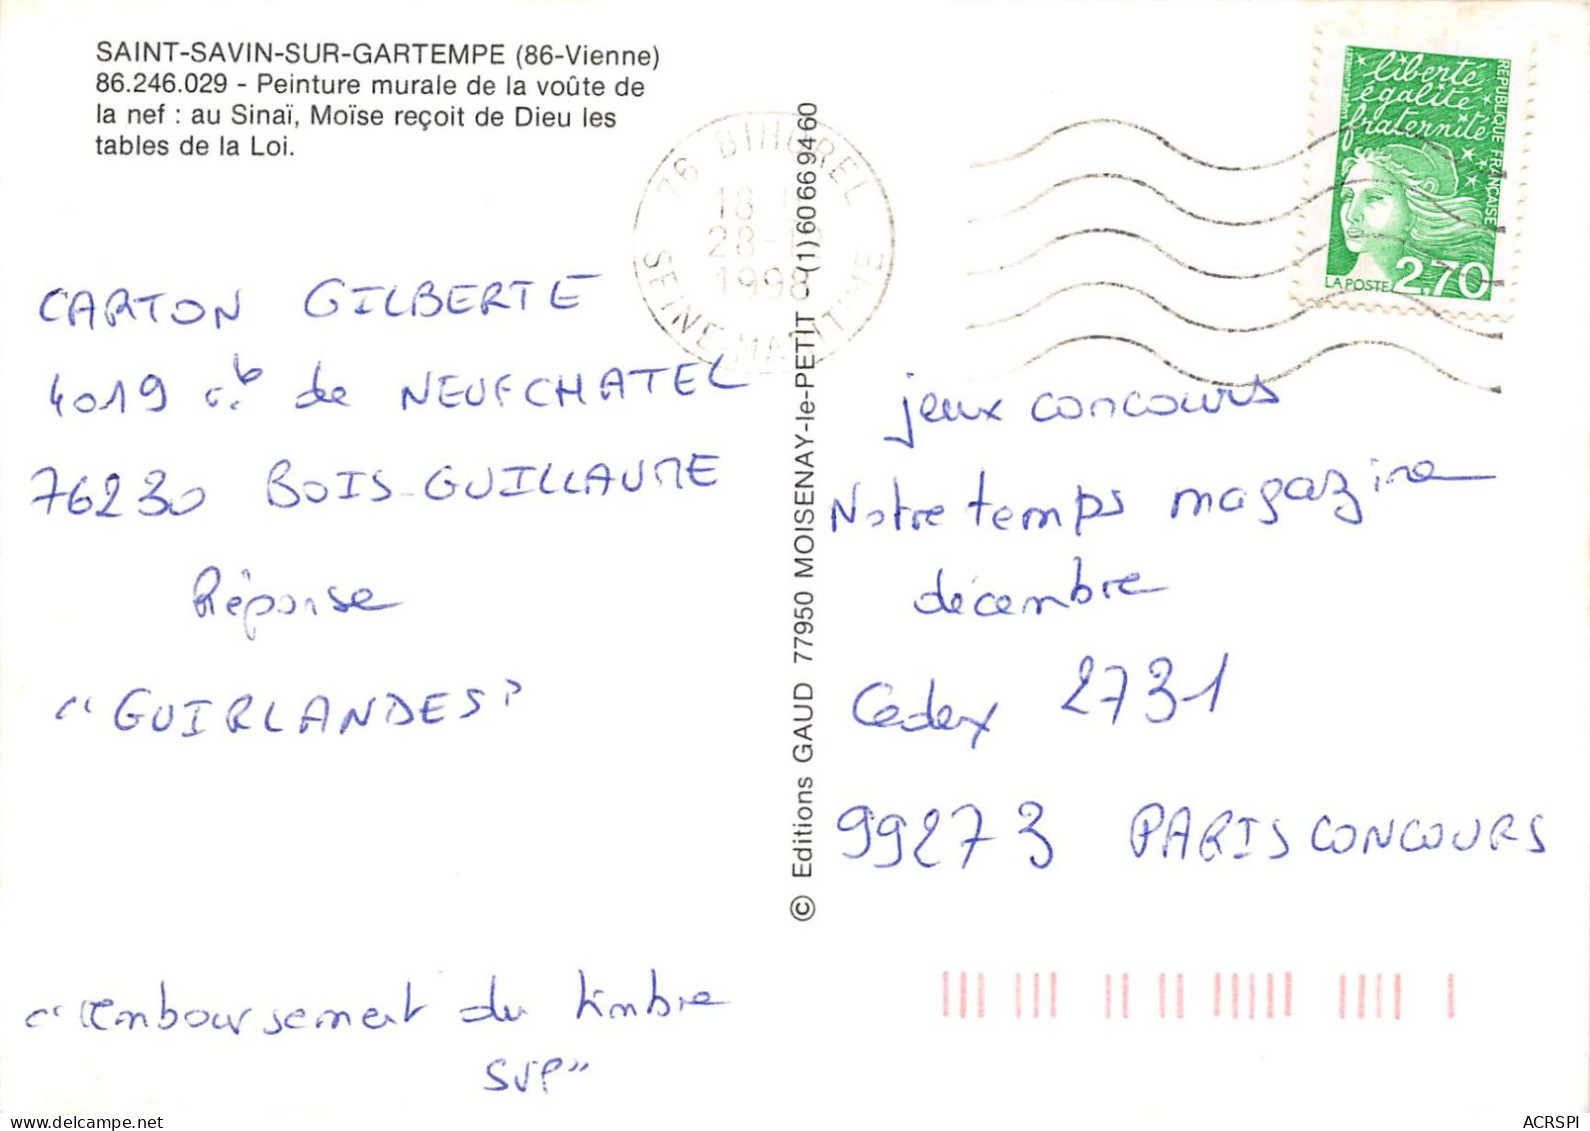 SAINT-SAVIN-SUR-GARTEMPE (86-Vienne)
86.246.029 - Peinture murale de la voûte de
la nef : au Sinaï, Moïse reçoit de Dieu les
tables de la Loi.
CARTON GILBERTE
4019 de NEUFCHATEL
76230 BOIS-GUILLAUME
Réponse
"GUIRLANDES"
"remboursement du timbre
SVP"
© Editions GAUD 77950 MOISENAY-le-PETIT - (1) 60 66 94 60
76 BIHOREL
18 H
28-
1998
SEINE-MARITIME
liberté
égalité
fraternité
REPUBLIQUE FRANÇAISE
LA POSTE 2,70
jeux concours
Notre temps magazine
décembre
Cedex 2731
99273 PARIS CONCOURS
ACRSPI